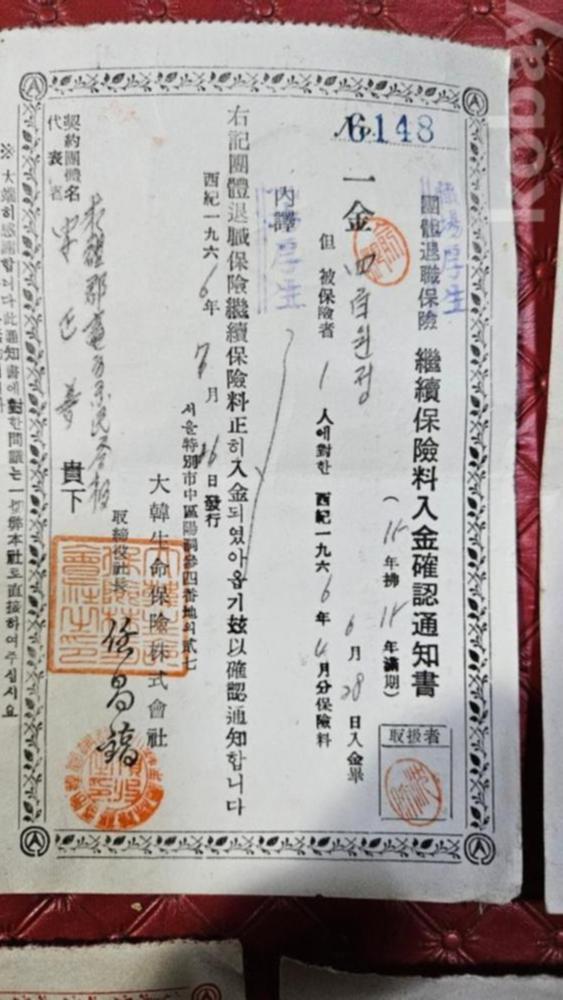 No 6148
職場厚生
團體退職保險 繼續保險料入金確認通知書
(年拂 年滿期)
取扱者
一金 四百원정
但 被保險者 1 人에對한 西紀一九六6年 4月分保險料
6月28日入金畢
內譯
厚生
右記團體退職保險繼續保險料正히入金되였아옵기玆以確認通知합니다
西紀一九六6年 7月 日發行
서울特別市中區陽洞參四番地의貳七
大韓生命保險株式會社
取締役社長 任昌鎬
契約團體名
代表者
貴下
※大端히感謝합니다此通知書에對한問議는一切弊本社로直接하여주십시요
kobay